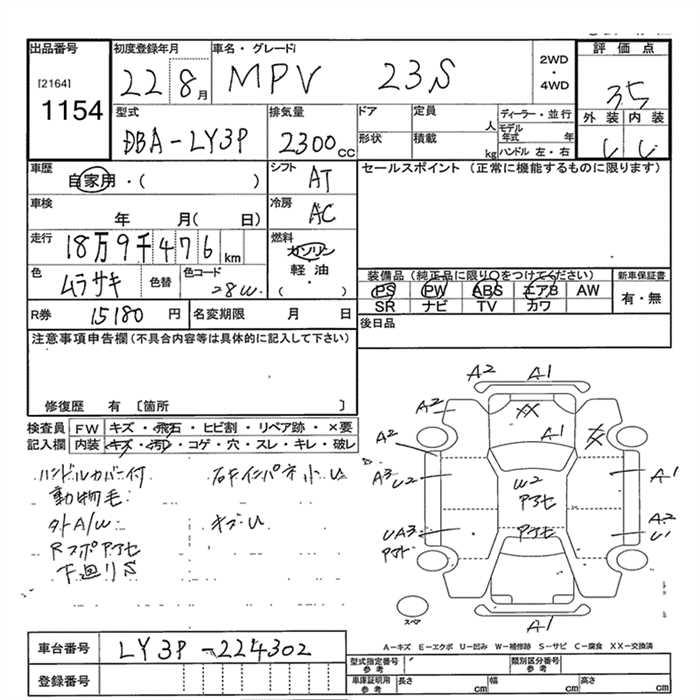 出品番号
[2164]
1154
初度登録年月
22 8月
車名・グレード
MPV 23S
2WD
・
4WD
評価点
3.5
外装 内装
型式
DBA-LY3P
排気量
2300cc
ドア
形状
定員
人
積載
kg
ディーラー・並行
モデル年式 年
ハンドル 左・右
車歴
自家用・( )
シフト
AT
セールスポイント (正常に機能するものに限ります)
車検
年 月( 日)
冷房
AC
走行
18万9千476km
燃料
ガソリン
軽油
( ・ )
色
ムラサキ
色替
色コード
28W
装備品(純正品に限り○をつけてください)
PS PW ABS エアB AW
SR ナビ TV カワ
新車保証書
有・無
R券 15180円
名変期限 月 日
後日品
注意事項申告欄(不具合内容等は具体的に記入して下さい)
修復歴 有 〔箇所 〕
検査員記入欄
FW キズ・飛石・ヒビ割・リペア跡・×要
内装 キズ・汚れ・コゲ・穴・スレ・キレ・破レ
ハンドルカバー付
動物毛
社外A/W
下廻りS
キズU
A2 A1
A2
XX
A1
A2
A3
U2
W2
アセ
A1
UA3
アセ
A2
U1
A1
スペア
A-キズ E-エクボ U-凹み W-補修跡 S-サビ C-腐食 XX-交換済
車台番号
LY3P-224302
登録番号
型式指定番号
参考
類別区分番号
参考
車庫証明用
参考
長さ cm
幅 cm
高さ cm